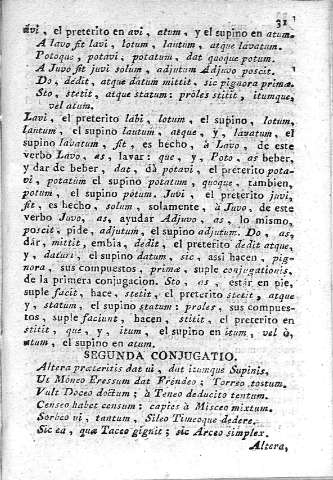 31
avi, el preterito en avi, atum, y el supino en atum.
A lavo fit lavi, lotum, lautum, atque lavatum.
Potoque, potavi, potatum, dat quoque potum.
A Juvo fit juvi solum, adjutum Adjuvo poscit.
Do, dedit, atque datum mittit, sic pignora primæ.
Sto, stetit, atque statum: proles stitit, itumque,
vel atum.
Lavi, el preterito labi, lotum, el supino, lotum,
lautum, el supino lautum, atque, y, lavatum, el
supino lavatum, fit, es hecho, à Lavo, de este
verbo Lavo, as, lavar: que, y, Poto, as beber,
y dar de beber, dat, dà potavi, el preterito pota-
vi, potatum el supino potatum, quoque, tambien,
potum, el supino potum, Javi, el preterito juvi,
fit, es hecho, solum, solamente, à Juvo, de este
verbo Juvo, as, ayudar Adjuvo, as, lo mismo,
poscit, pide, adjutum, el supino adjutum. Do, as,
dàr, mittit, embia, dedit, el preterito dedit atque,
y, datum, el supino datum, sic, assi hacen, pig-
nora, sus compuestos, primæ, suple conjugationis,
de la primera conjugacion. Sto, as, estàr en pie,
suple facit, hace, stetit, el preterito stetit, atque
y, statum, el supino statum: proles, sus compues-
tos, suple faciunt, hacen, stitit, el preterito en
stitit, que, y, itum, el supino en itum, vel ò,
atum, el supino en atum.
SEGUNDA CONJUGATIO.
Altera præteritis dat ui, dat itumque Supinis.
Ut Moneo Eressum dat Frendeo; Torreo tostum.
Vult Doceo doctum; à Teneo deducito tentum.
Censeo habet censum: capies à Misceo mixtum.
Sorbeo ui, tantum, Sileo Timeoque dedere.
Sic ea, quæ Taceo gignit; sic Arceo simplex.
Altera,